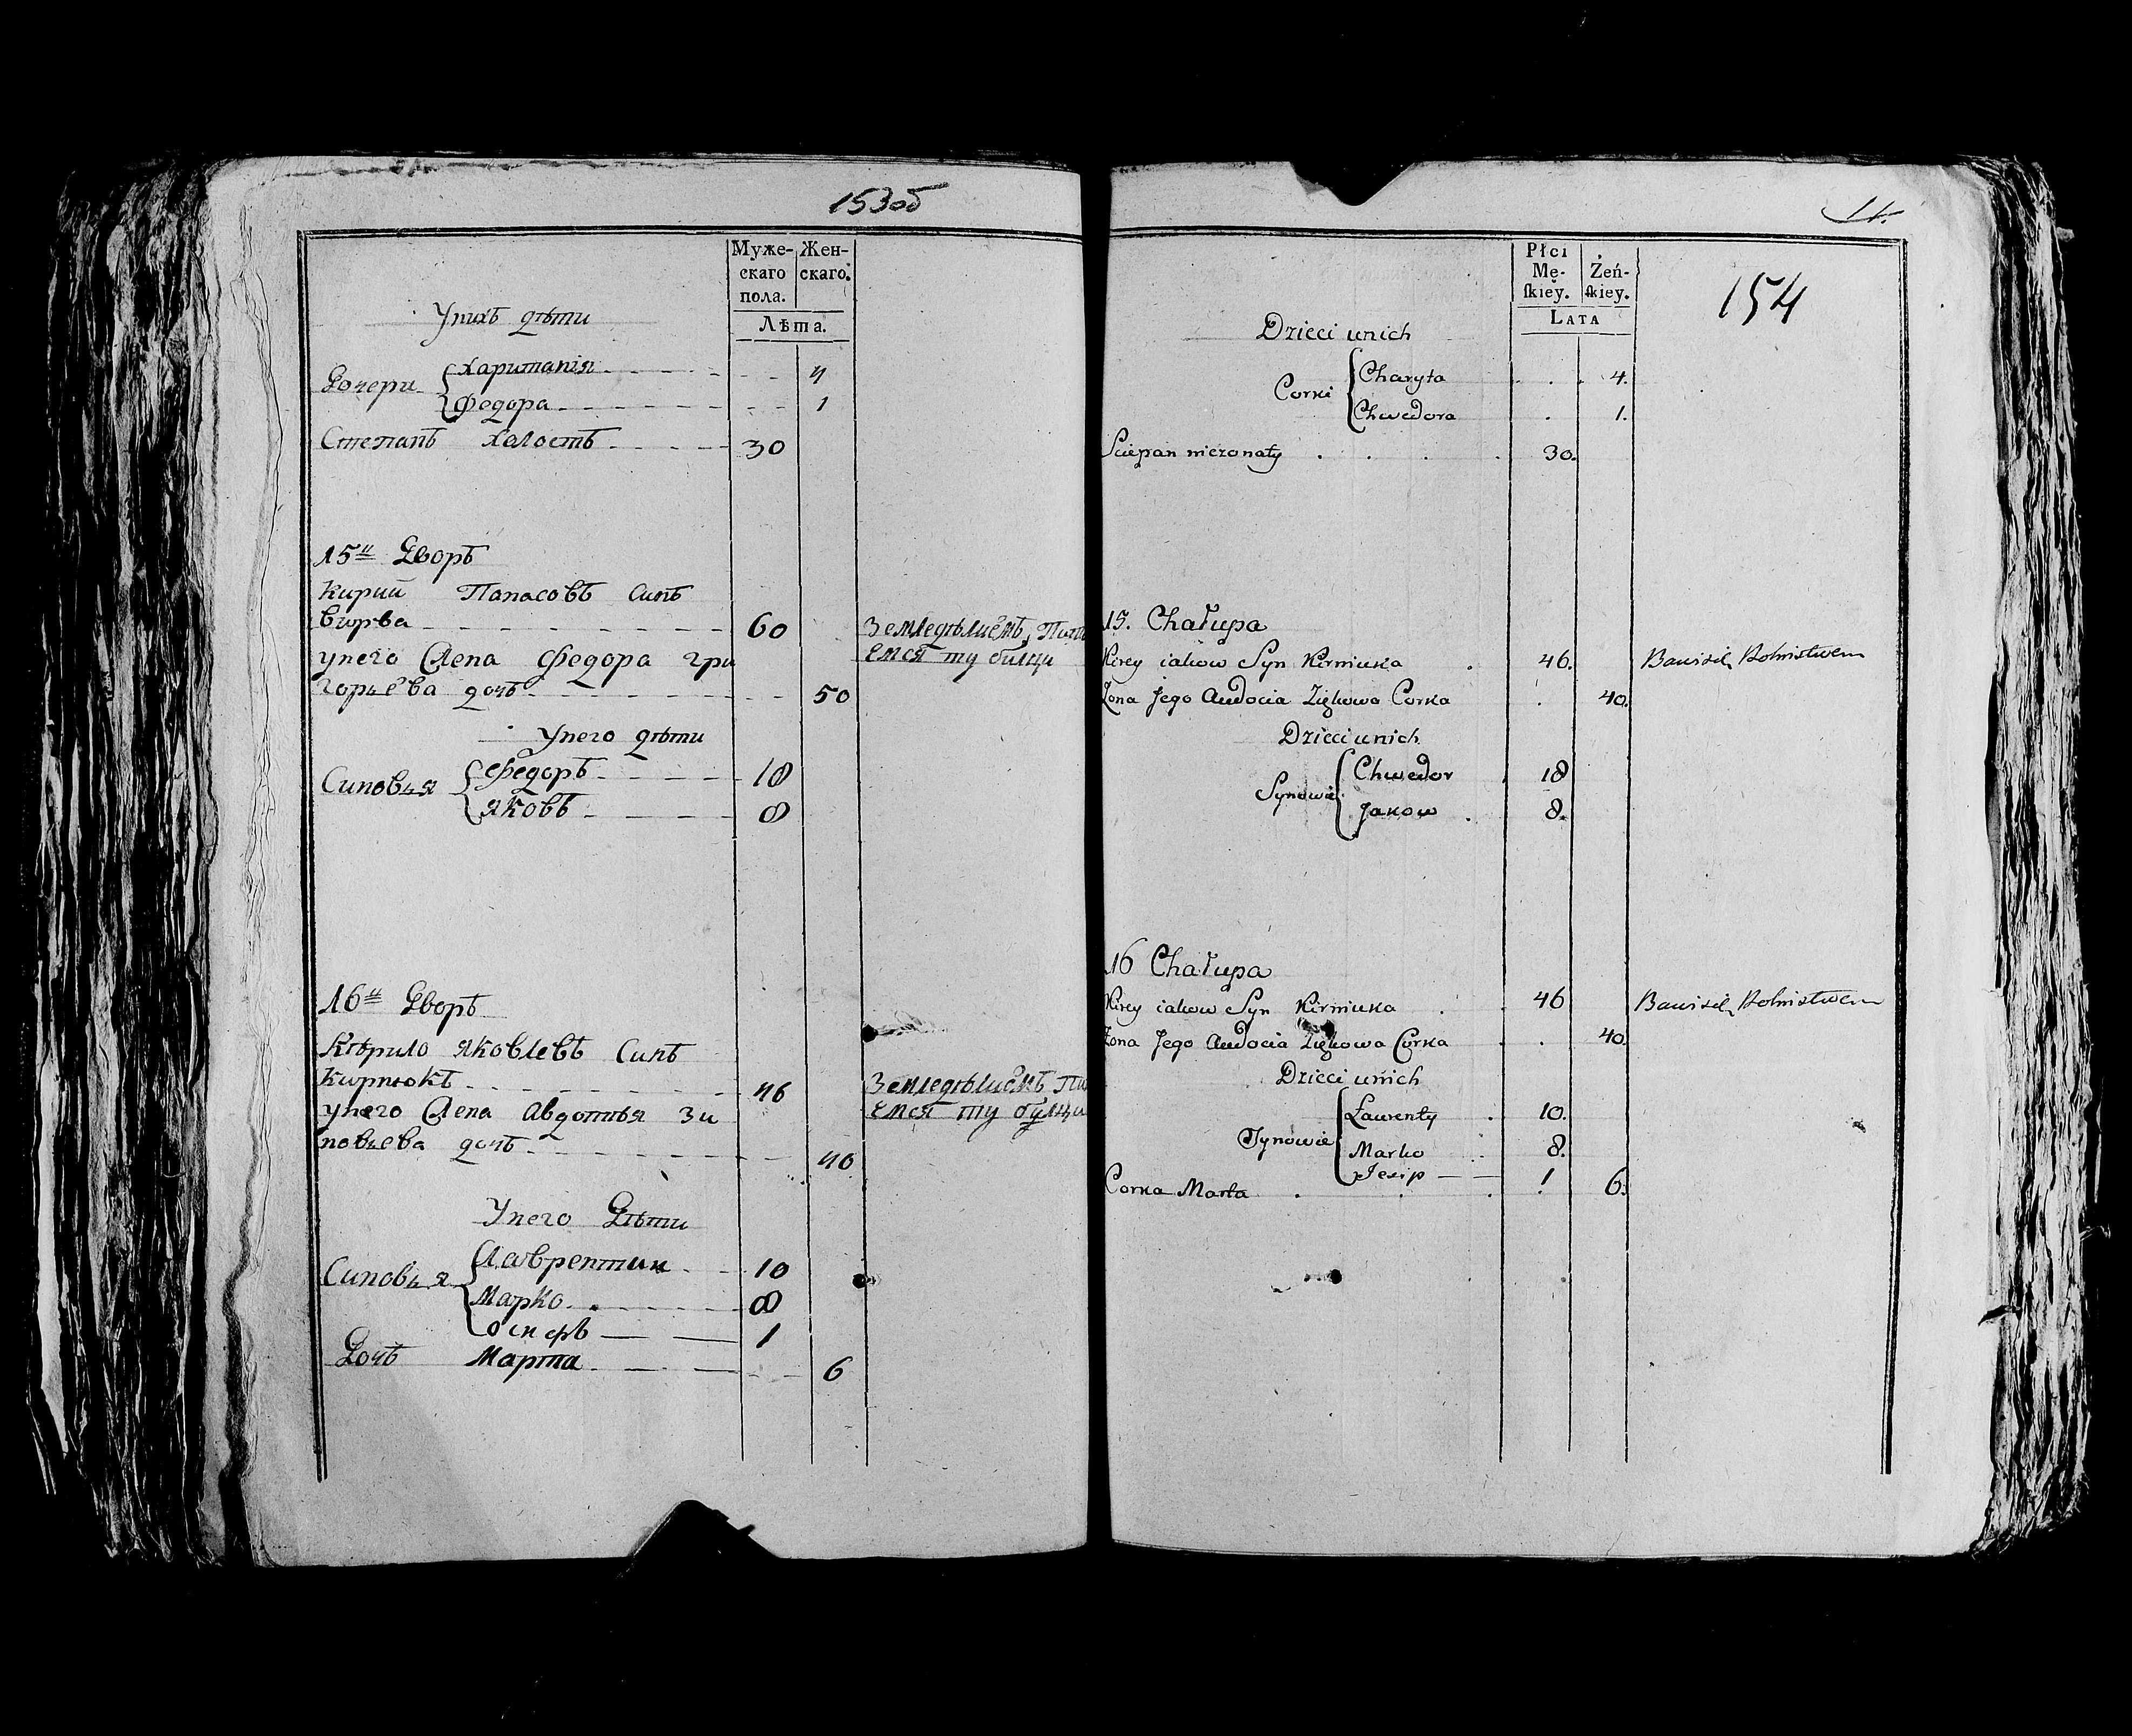 153об
Муже- Жен-
скаго скаго.
пола.
Лѣта.
Унихъ дѣти
Дочери Хаританія 4
Федора 1
Степанъ Халостъ 30
15й Дворъ
Кирий Панасовъ Синъ
60
Земледѣлиемъ
унего Жена Федора Гри
горьева дочь 50
Унего дѣти
Синовья Федоръ 18
Яковъ 8
16й Дворъ
Яковлевъ Синъ
Кирнюкъ 46
Земледѣлиемъ
унего Жена Авдотья Зи
новьева дочь 40
Унего Дѣти
Синовья Лаврентии 10
Марко 8
Осифъ 1
Дочь Марта 6
154
Płci
Mę- Żeń-
ſkiey. ſkiey.
LATA
Dzieci unich
Corki Charyta 4.
Chwedora 1.
Sciepan niezonaty 30.
15. Chałupa
Kirey iakow Syn Kirniuka 46. Bawi sie Rolnistwem
Zona Jego Audocia ZięKowa Corka 40.
Dzieci unich
Synowie Chwedor 18
Jakow 8.
16 Chałupa
Kirey iakow Syn Kirniuka 46 Bawi sie Rolnistwem
Zona Jego Audocia ZięKowa Corka 40.
Dzieci unich
Synowie Laurenty 10.
Marko 8.
Jesip 1
Corka Marta 6.